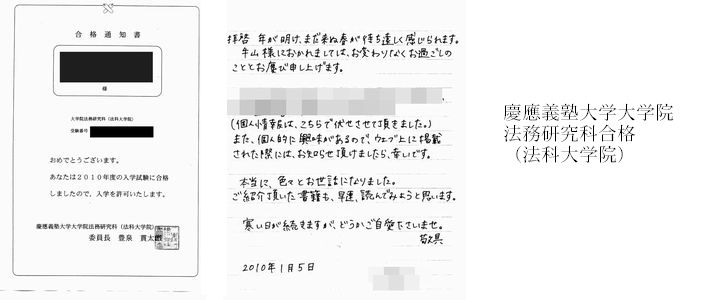 合格通知書
様
大学院法務研究科（法科大学院）
受験番号
おめでとうございます。
あなたは２０１０年度の入学試験に合格
しましたので、入学を許可いたします。
慶應義塾大学大学院法務研究科（法科大学院）
委員長 豊泉 貫太郎
拝啓 年が明け、まだ来ぬ春が待ち遠しく感じられます。
牛山様におかれましては、お変わりなくお過ごしの
こととお慶び申し上げます。
（個人情報は、こちらで伏せさせて頂きました。）
また、個人的に興味があるので、ウェブ上に掲載
された際には、お知らせ頂けましたら、幸いです。
本当に、色々とお世話になりました。
ご紹介頂いた書籍も、早速、読んでみようと思います。
寒い日が続きますが、どうかご自愛下さいませ。
敬具
2010年1月5日
慶應義塾大学大学院
法務研究科合格
（法科大学院）